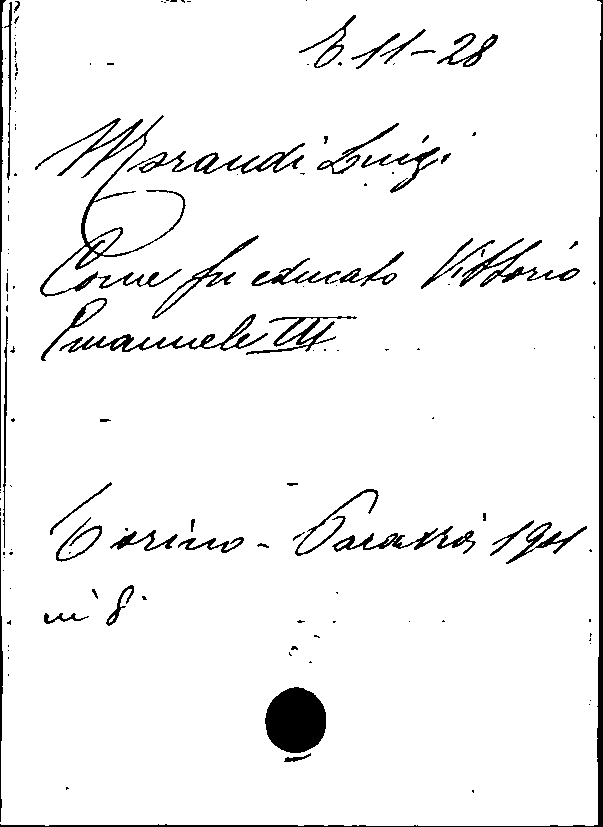 E. 11-28
Morandi Luigi
Come fu educato Vittorio
Emanuele III
Torino - Paravia 1901
in 8°